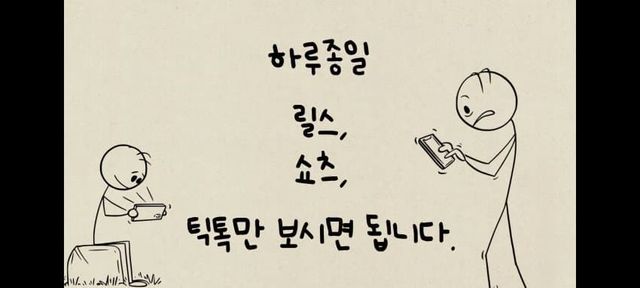 하루종일
릴스,
쇼츠,
틱톡만 보시면 됩니다.